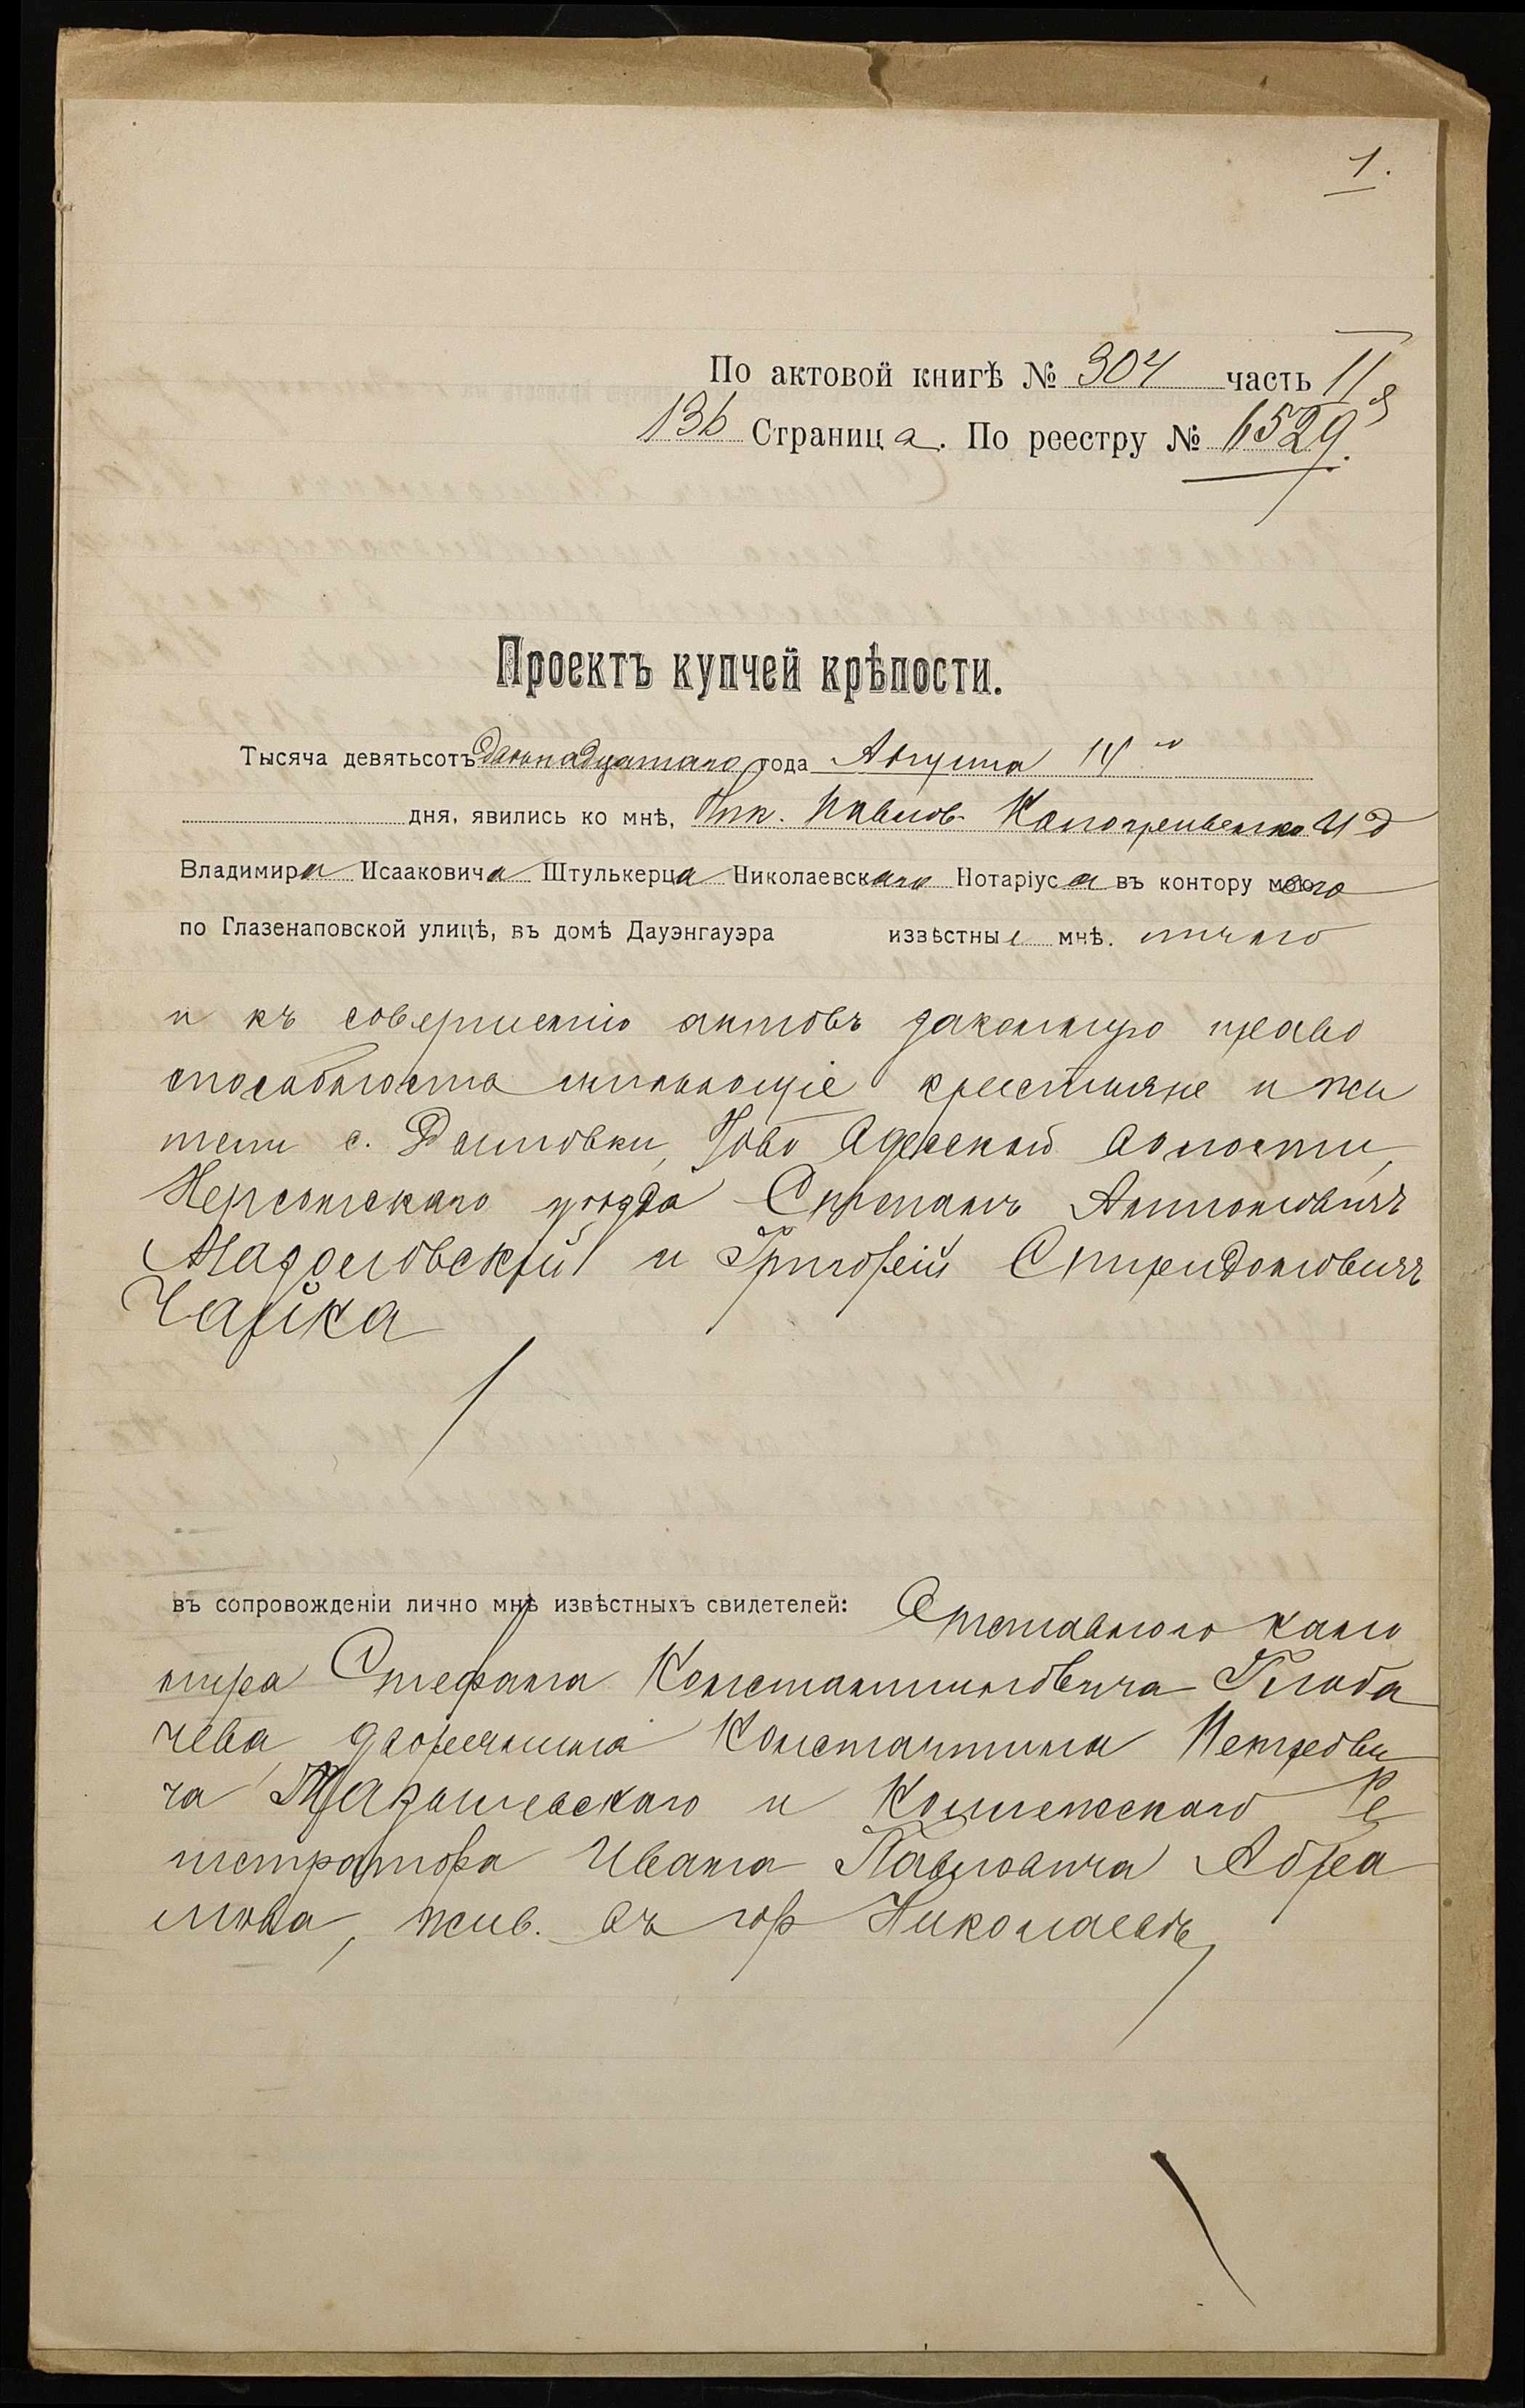 1.
По актовой книгѣ № 304 часть II я
136 Страница. По реестру № 6529.
Проектъ купчей крѣпости.
Тысяча девятьсотъ двѣнадцатаго года Августа 14 го
дня, явились ко мнѣ, Ник. Павлов. И д
Владимира Исааковича Штулькерца Николаевскаго Нотаріуса въ контору его
по Глазенаповской улицѣ, въ домѣ Дауэнгауэра извѣстные мнѣ. лично
и къ совершенію актовъ законную право
способность имѣющіе крестьяне и жи
тели с. Ново Одесской волости,
Херсонскаго уѣзда Степанъ Антоновичъ
и Григорій Спиридоновичъ
Чайка
въ сопровожденіи лично мнѣ извѣстныхъ свидетелей: Отставного кано
нира Стефана Константиновича Глоба
чева, дворянина Константина Петрови
ча и Коллежскаго Ре
гистратора Ивана Павловича Абра
мова, жив. въ гор Николаевѣ,